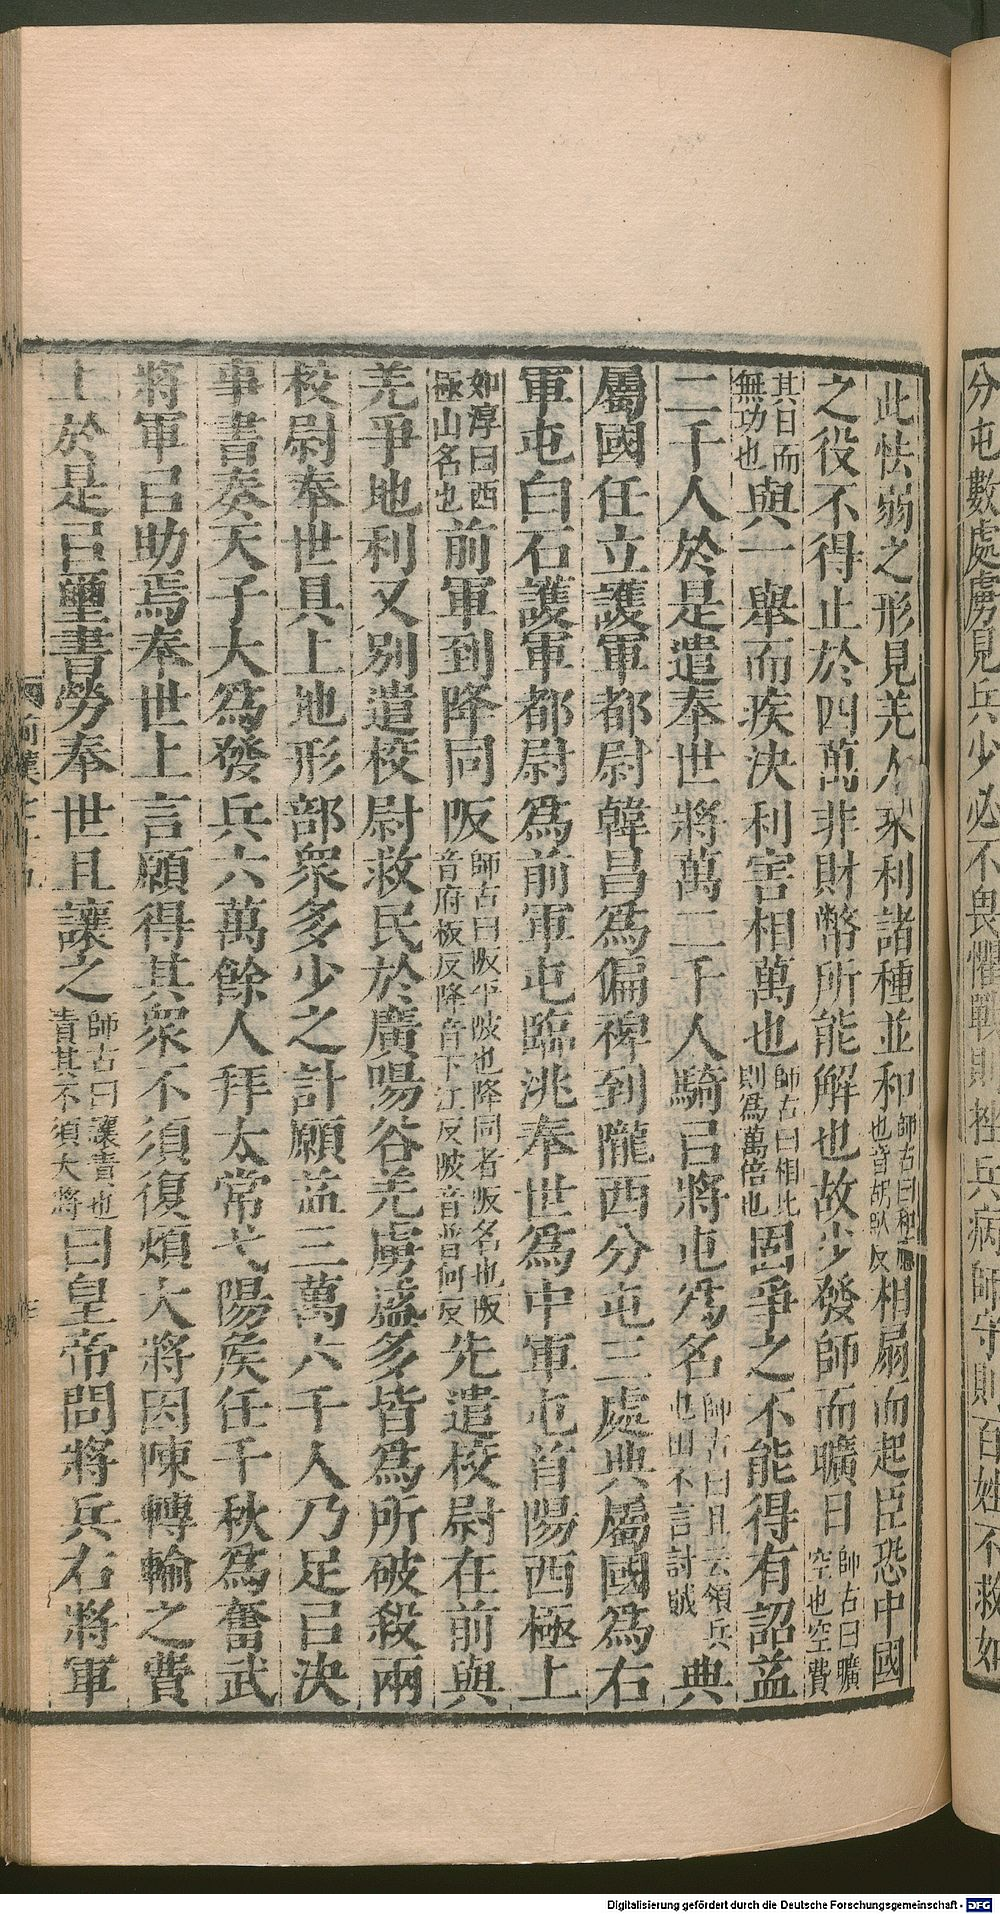 分屯數處虜見兵少必不畏懼戰則挫兵病師守則百姓不救如
此怯弱之形見羌人乘利諸種並和師古曰和應也音胡臥反相扇而起臣恐中國
之役不得止於四萬非財幣所能解也故少發師而曠日師古曰曠空也空費
其日而無功也與一舉而疾決利害相萬也師古曰相比則爲萬倍也固爭之不能得有詔益
二千人於是遣奉世將萬二千人騎㠯將屯爲名師古曰且云領兵屯田不言討賊典
屬國任立護軍都尉韓昌爲偏裨到隴西分屯三處典屬國爲右
軍屯白石護軍都尉爲前軍屯臨洮奉世爲中軍屯首陽西極上
如淳曰西極山名也前軍到降同阪師古曰阪平陂也降同者阪名也阪音府板反降音下江反陂音普何反先遣校尉在前與
羌爭地利又別遣校尉救民於廣陽谷羌虜盛多皆爲所破殺兩
校尉奉世具上地形部衆多少之計願益三萬六千人乃足㠯決
事書奏天子大爲發兵六萬餘人拜太常弋陽侯任千秋爲奮武
將軍㠯助焉奉世上言願得其衆不須復煩大將因陳轉輸之費
上於是㠯璽書勞奉世且讓之師古曰讓責也責其不須大將曰皇帝問將兵右將軍
前漢七十九
Digitalisierung gefördert durch die Deutsche Forschungsgemeinschaft - DFG